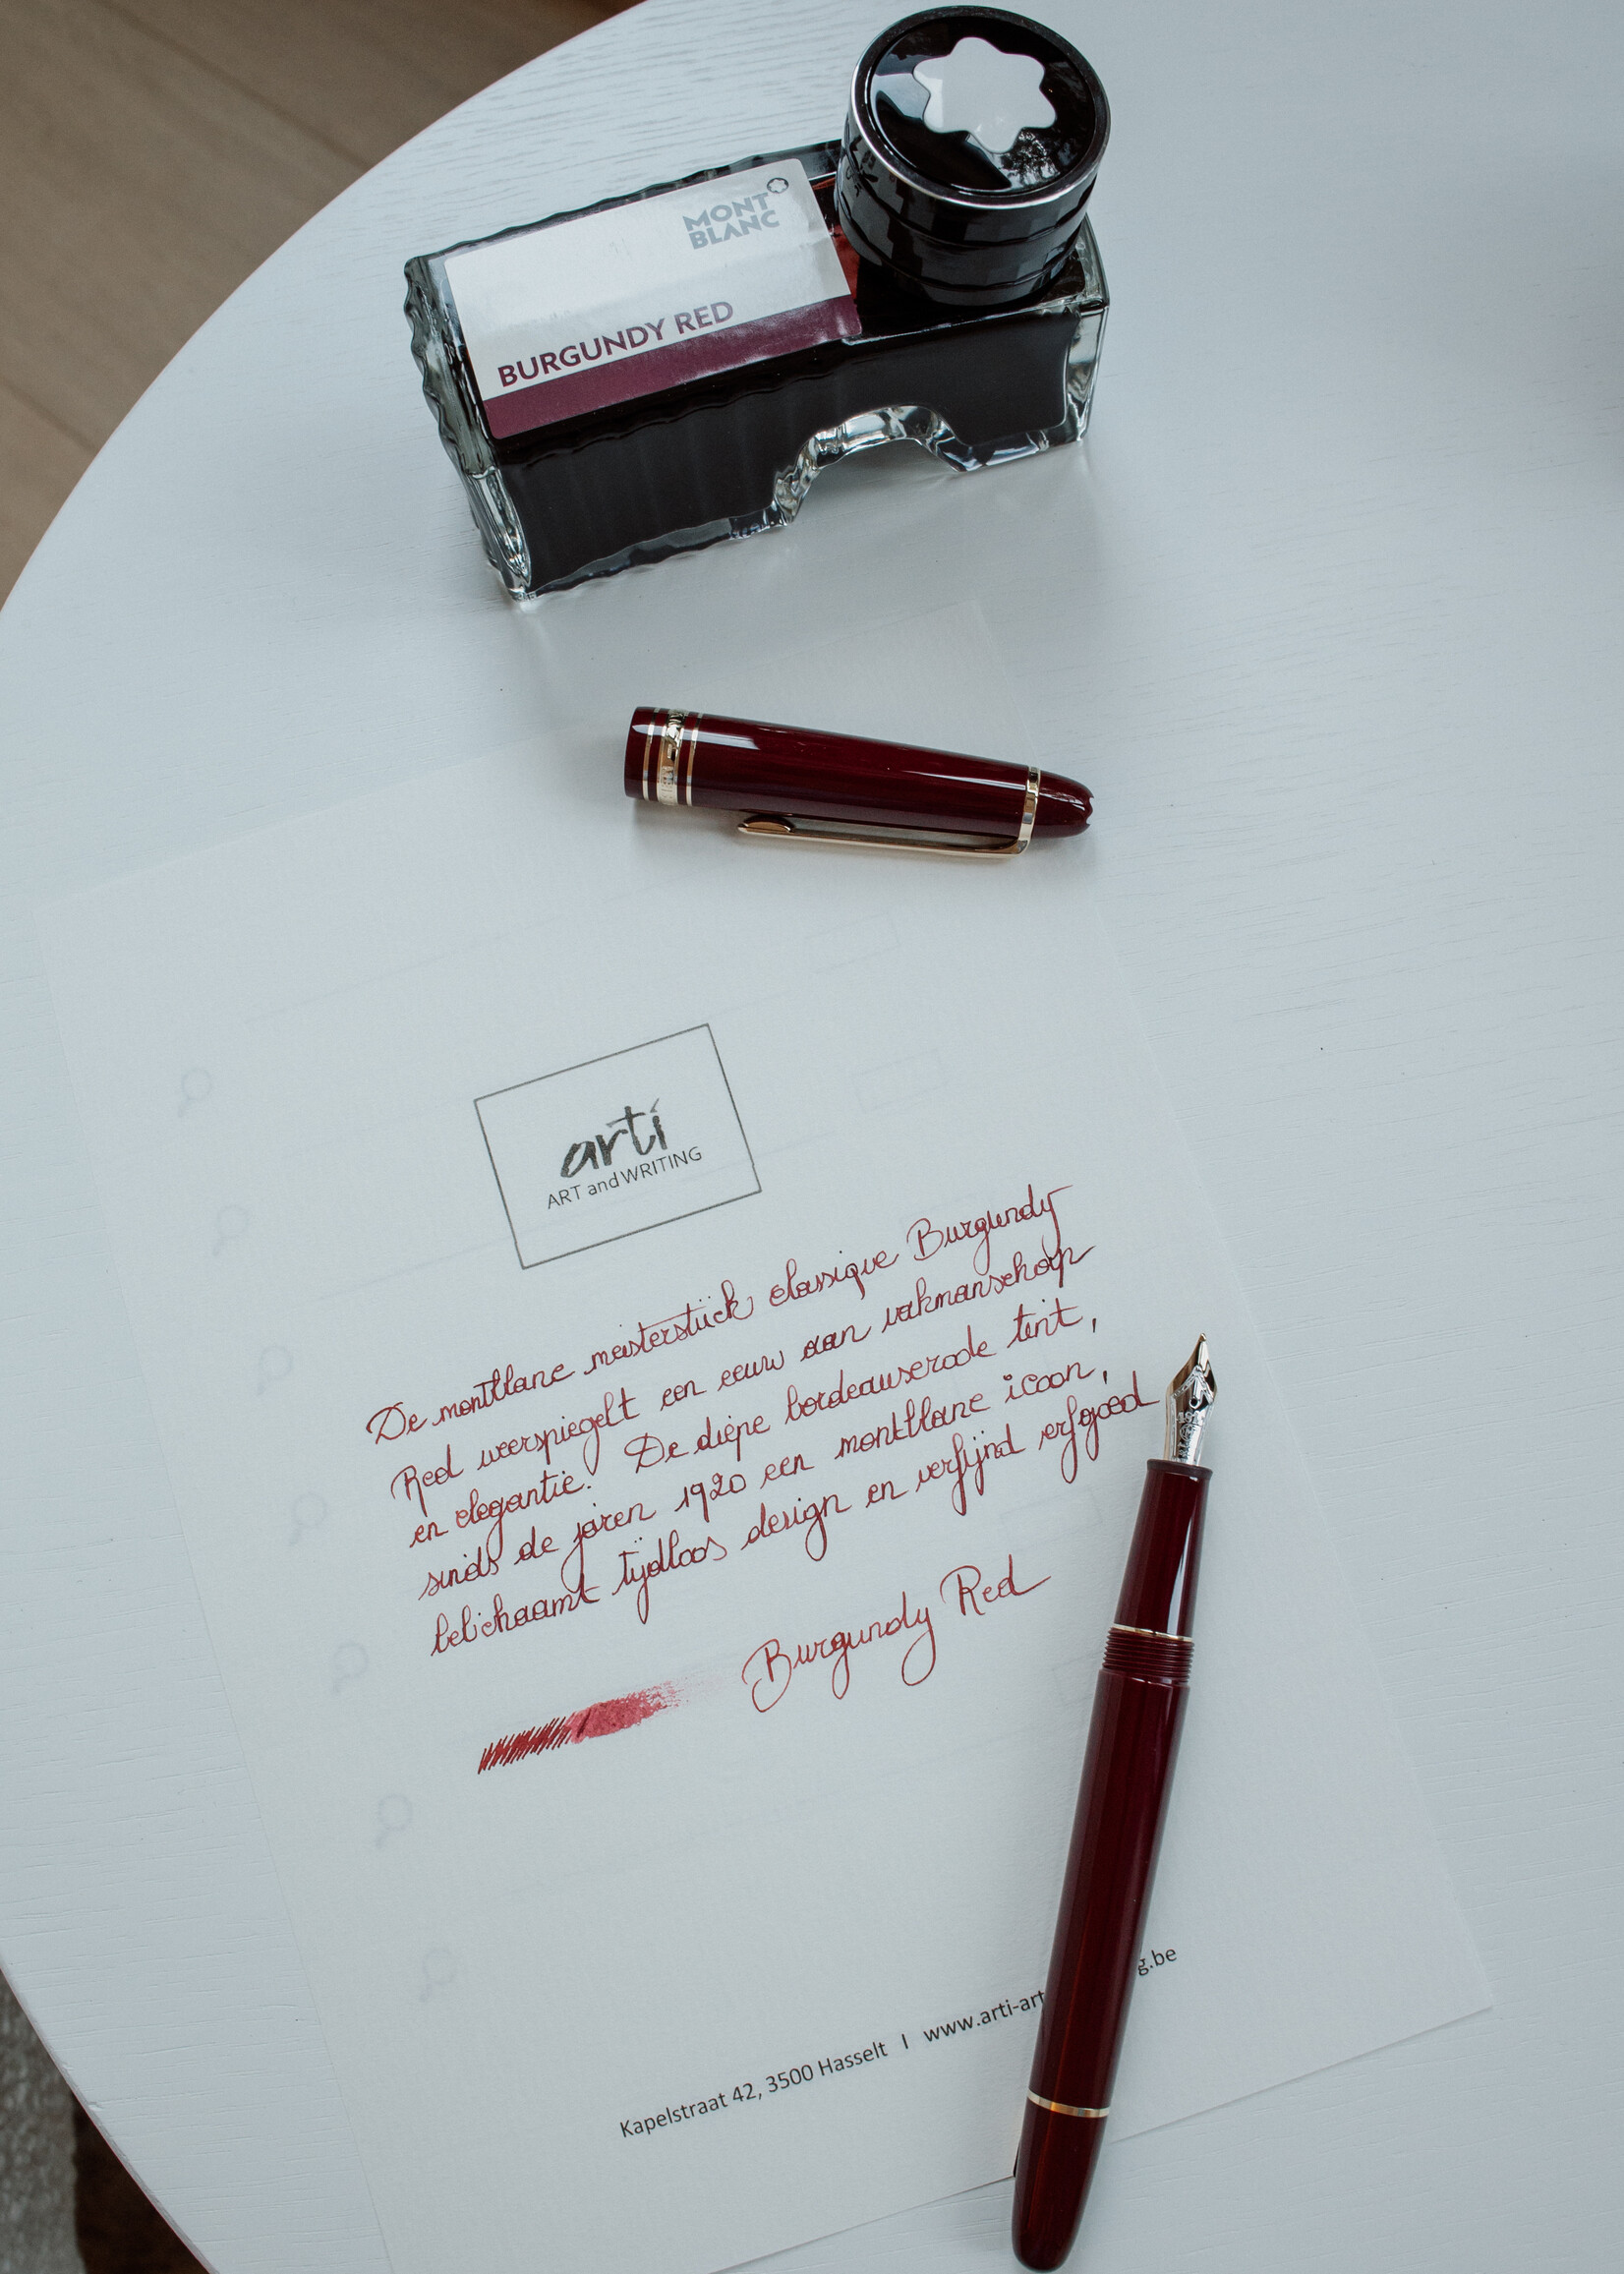 MONT
BLANC
BURGUNDY RED
arti
ART and WRITING
De montblanc meisterstück classique Burgundy
Red weerspiegelt een eeuw aan vakmanschap
en elegantie. De diepe bordeauxrode tint,
sinds de jaren 1920 een montblanc icoon,
belichaamt tijdloos design en verfijnd erfgoed
Burgundy Red
Kapelstraat 42, 3500 Hasselt I www.arti-art g.be